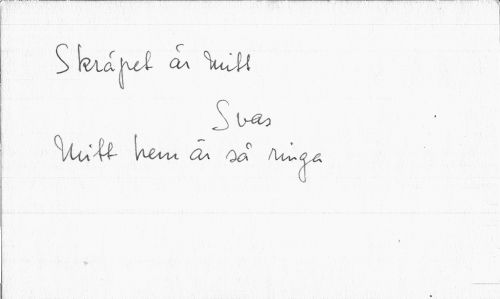 Skräpet är mitt
Svar
Mitt hem är så ringa